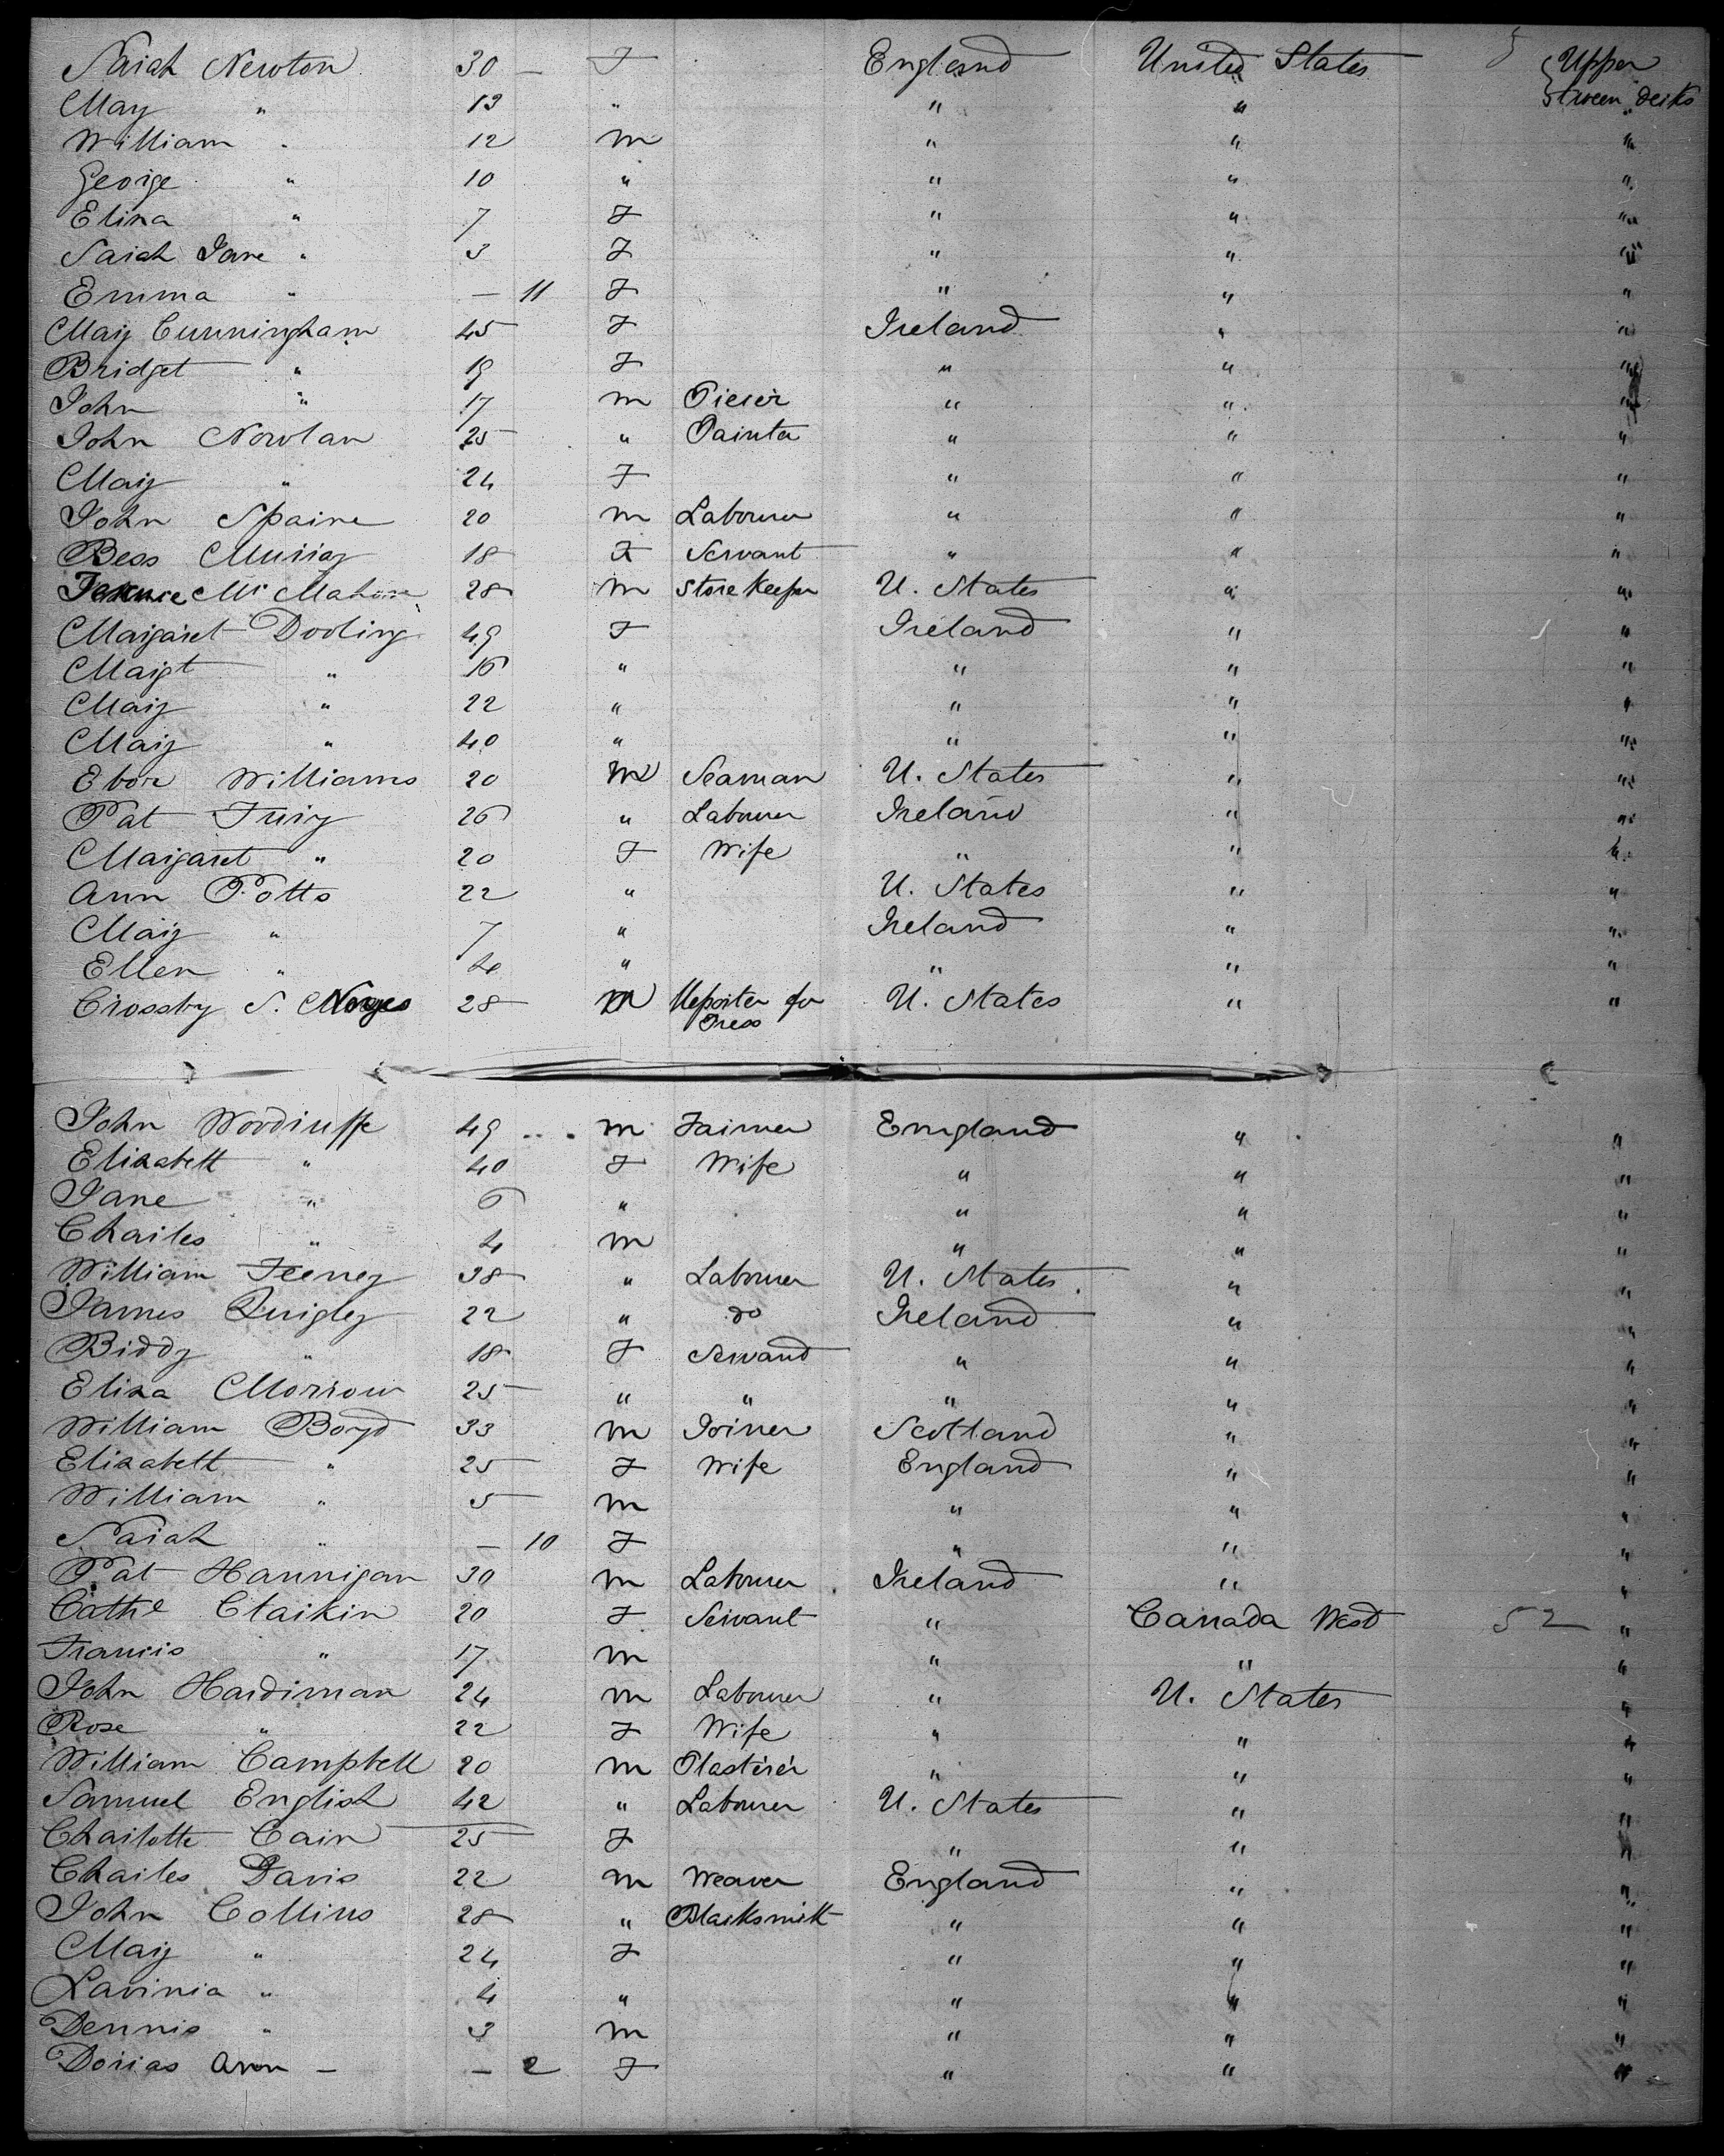 Sarah Newton 30 – F England United States Upper
Mary " 13 " " " tween decks
William " 12 m " " "
George " 10 " " " "
Eliza " 7 F " " "
Sarah Jane " 3 F " " "
Emma " – 11 F " " "
Mary Cunningham 45 F Ireland " "
Bridget " 19 F " " "
John " 17 m Piecer " " "
John Nowlan 25 " Painter " " "
Mary " 24 F " " "
John Spaine 20 m Labourer " " "
Bess Murray 18 F Servant " " "
Terence McMahon 28 m Store Keeper U. States " "
Margaret Dooling 49 F Ireland " "
Margt " 16 " " " "
Mary " 22 " " " "
Mary " 40 " " " "
Ebor Williams 20 m Seaman U. States " "
Pat Fury 26 " Labourer Ireland " "
Margaret " 20 F Wife " " "
Ann Potts 22 " U. States " "
Mary " 7 " Ireland " "
Ellen " 4 " " " "
Crossby S. Noyes 28 m Reporter for U. States " "
Press
John Woodruffe 49 m Farmer England " "
Elizabeth " 40 F Wife " " "
Jane " 6 " " " "
Charles " 4 m " " "
William Feeney 38 " Labourer U. States " "
James Quigley 22 " do Ireland " "
Biddy " 18 F Servand " " "
Eliza Morrow 25 " " " " "
William Boyd 33 m Joiner Scotland " "
Elizabeth " 25 F Wife England " "
William " 5 m " " "
Sarah " – 10 F " " "
Pat Hannigan 30 m Labourer Ireland " "
Cathe Clarkin 20 F Servant " Canada West 52 "
Francis " 17 m " " "
John Hardiman 24 m Labourer " U. States "
Rose " 22 F Wife " " "
William Campbell 20 m Plasterer " " "
Samuel English 42 " Labourer U. States " "
Charlotte Cain 25 F " " "
Charles Davis 22 m Weaver England " "
John Collins 28 " Blacksmith " " "
Mary " 24 F " " "
Lavinia " 4 " " " "
Dennis " 3 m " " "
Dorias Ann – – 2 F " " "